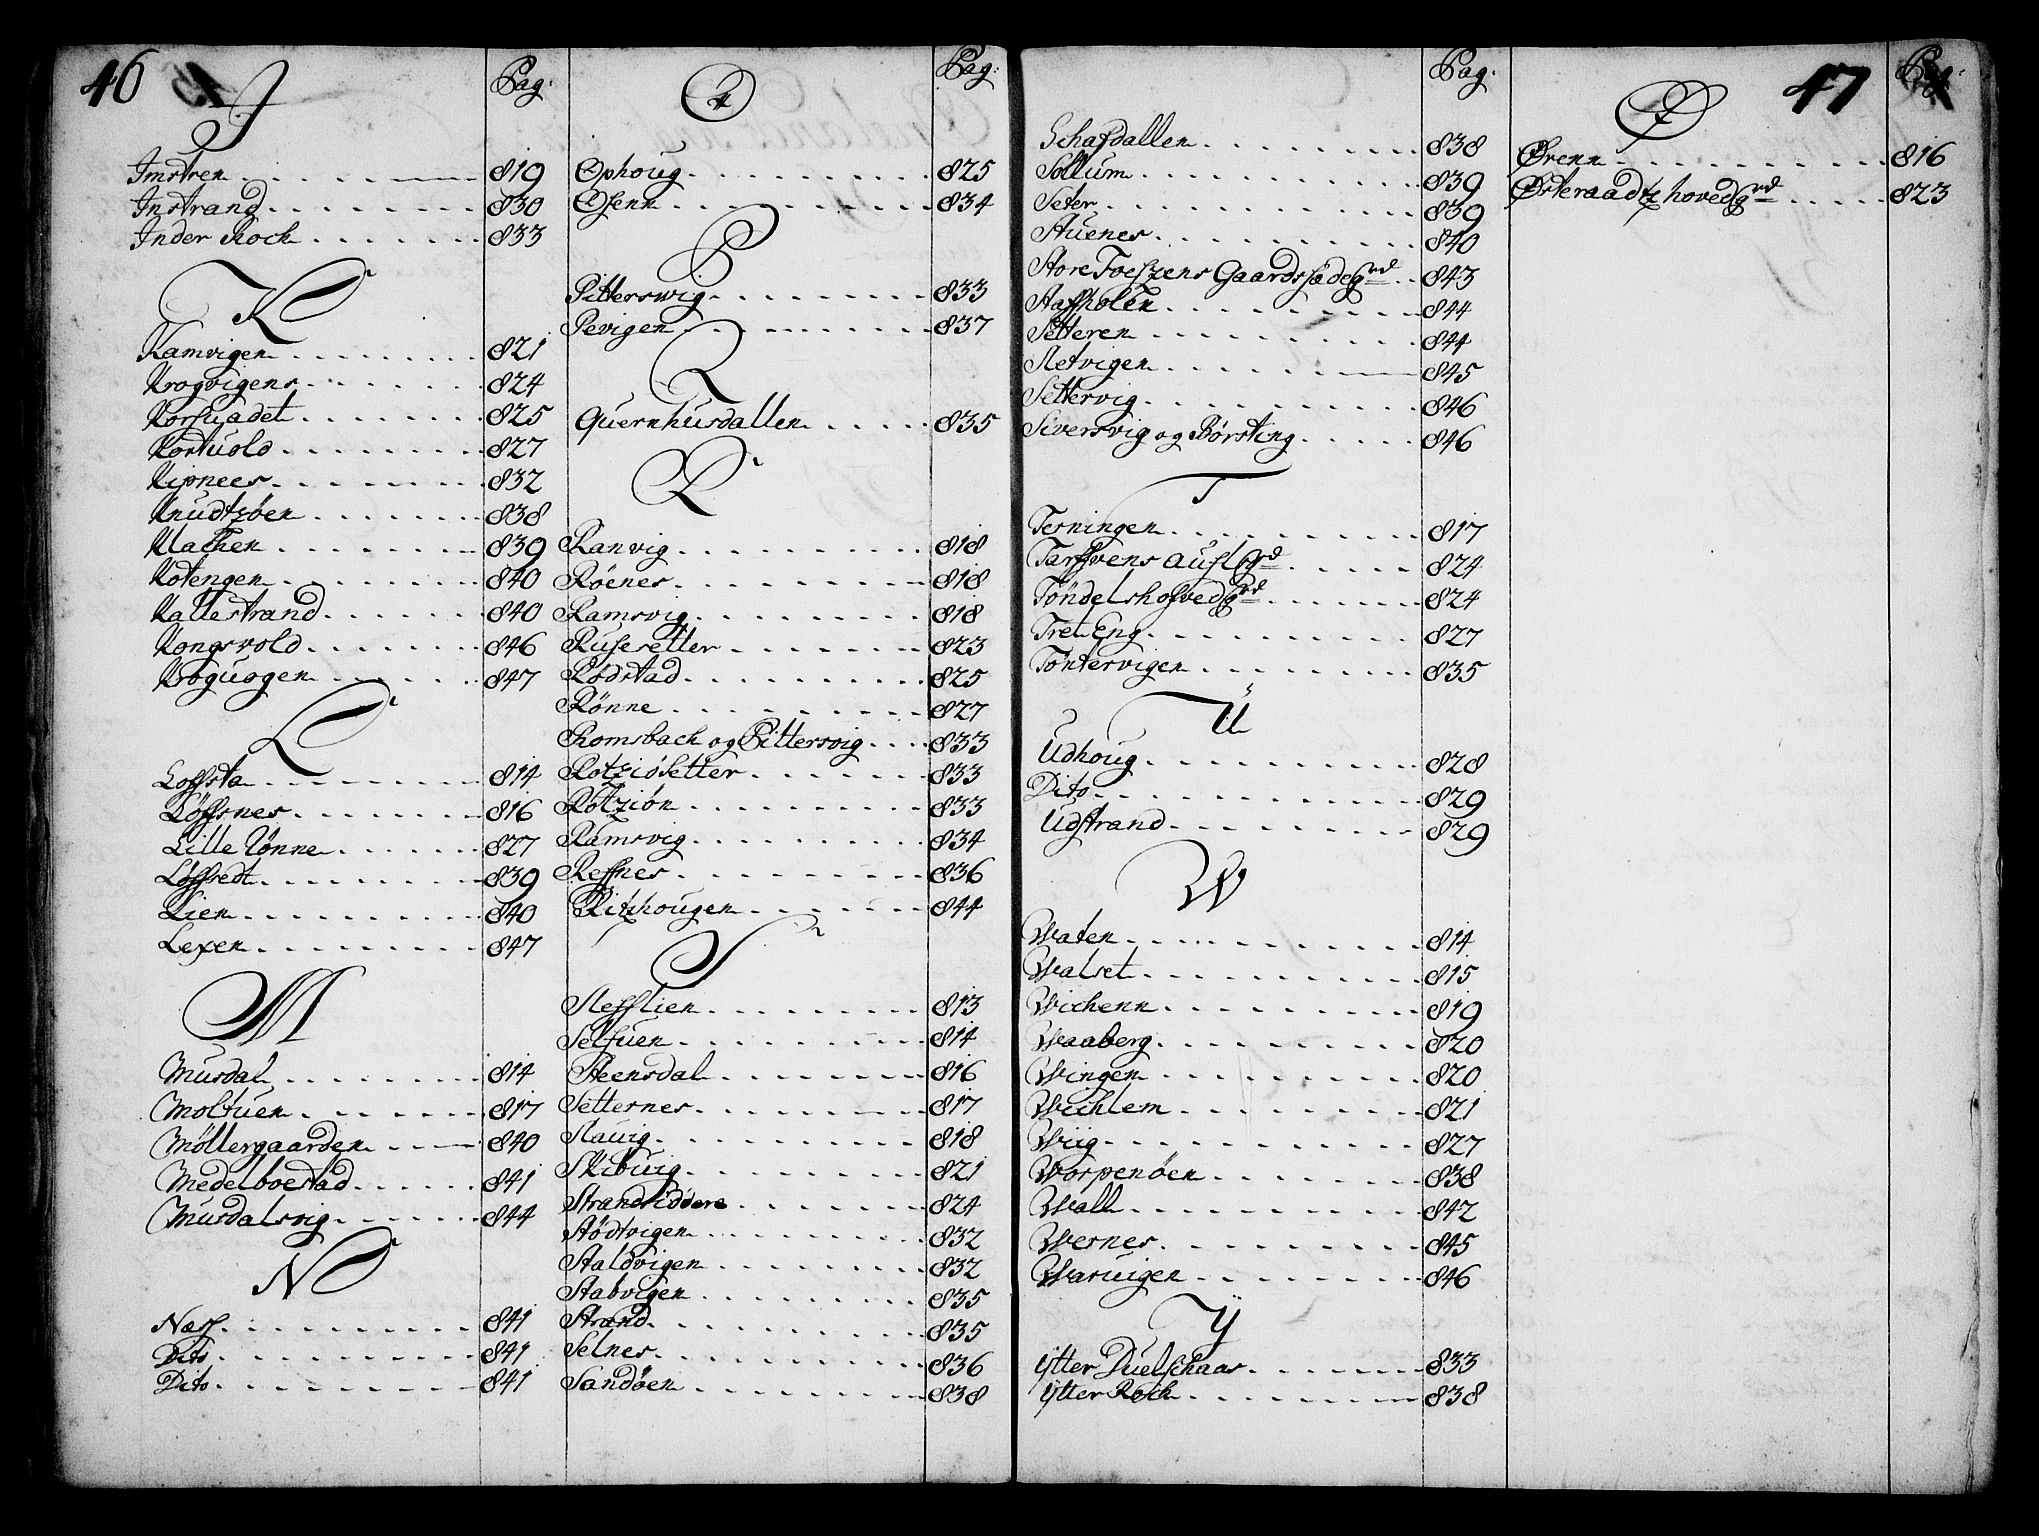 46
Pag:
J
Imstren 819
Instrand 830
Inder Roch 833
K
Kamvigen 821
Krogvigens 824
Korsuadet 825
Kortuold 827
Kipnees 832
Knudtzöen 838
Klachen 839
Kotengen 840
Kallestrand 840
Kongsvold 846
Kroguogen 847
L
Lossta 814
Lössnes 816
Lille Rönne 827
Lössredt 839
Lien 840
Lexen 847
M
Musdal 814
Moltuen 817
Möllergaarden 840
Medelboestad 841
Musdalsvig 844
N
Næss 841
Dito 841
Dito 841
Pag:
O
Ophoug 825
Osenn 834
P
Pitterswig 833
Pevigen 837
Q
Quernhusdallen 835
R
Ranvig 818
Röenes 818
Ramsvig 818
Rusesetter 823
Rödstad 825
Rönne 827
Romsbach og Pittersvig 833
Rotziösetter 833
Rotziön 833
Ramsvig 834
Ressnes 836
Ritzhougen 844
S
Slesslien 813
Selfuen 814
Steensdal 816
Setternes 817
Slauig 818
Skibuig 821
Strandsiddere 824
Stödtvigen 832
Staldvigen 832
Stabvigen 835
Strand 835
Selnes 836
Sandöen 838
Pag:
Schafdallen 838
Sollum 839
Seter 839
Stuenes 840
Store Foeszens Gaards sædeGrd 843
Stafsholen 844
Setteren 844
Sletvigen 845
Settervig 846
Siversvig og Börsting 846
T
Terningen 817
Tarssvens Aufl Grd 824
Töndels hofved Grd 824
Tret Eng 827
Töntervigen 835
U
Udhoug 828
Dito 829
Udstrand 829
W
Waten 814
Walset 815
Wichenn 819
Waaberg 820
Wingen 820
Wichlem 821
Wiig 827
Worpenöen 838
Wall 842
Wernes 845
Waruigen 846
Ÿ
Ÿtter Duelschaar 833
Ÿtter Roch 838
47
Pag:
Ø
Ørenn 816
Østeraadtz hoved Grd 823